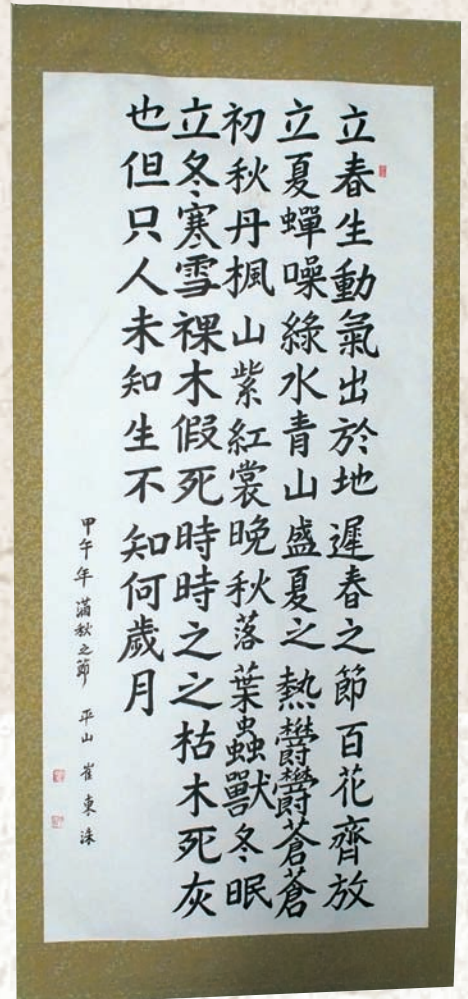 立春生動氣出於地遲春之節百花齊放
立夏蟬噪綠水青山盛夏之熱欝欝蒼蒼
初秋丹楓山紫紅裳晚秋落葉蟲獸冬眠
立冬寒雪裸木假死時時之之枯木死灰
也但只人未知生不知何歲月
甲午年 滿秋之節 平山 崔東洙